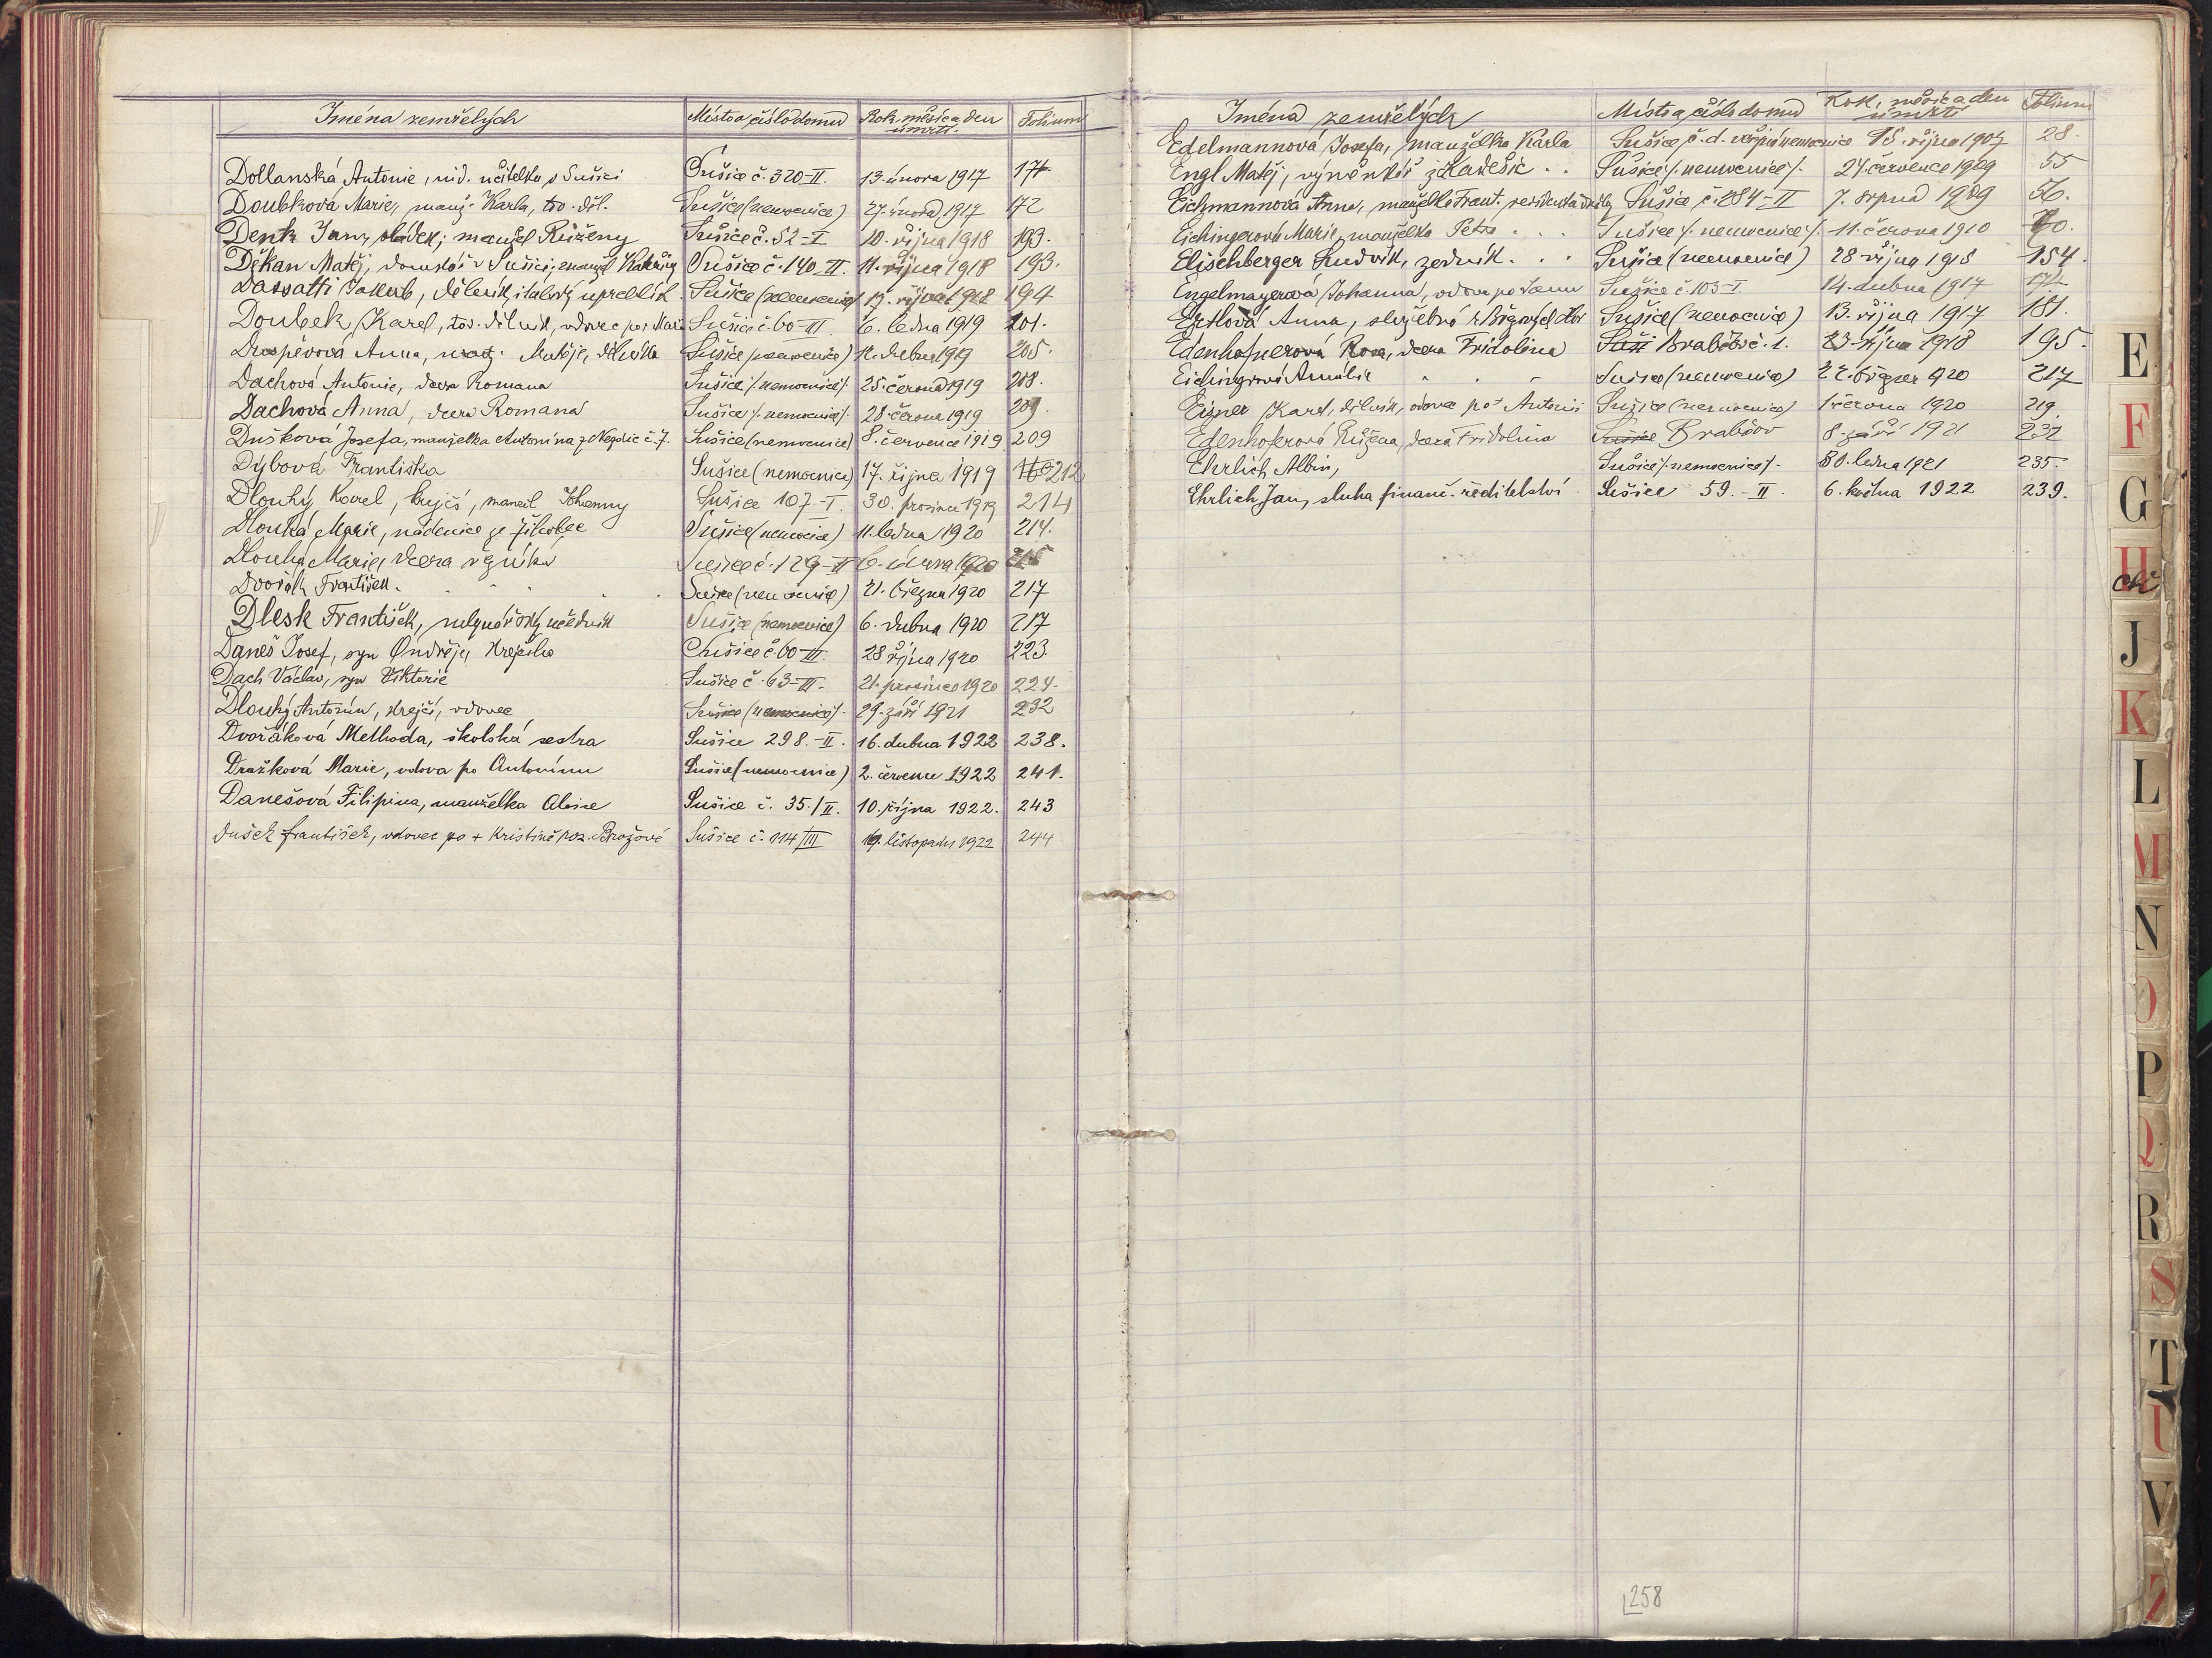 Jména zemřelých Místo a číslo domu Rok, měsíc a den úmrtí Folium
Dollanská Antonie, ind. učitelka v Sušici Sušice č. 320-II. 13. února 1917 171.
Doubková Marie, manž. Karla, tov. děl. Sušice (nemocnice) 27. února 1917 172
Denk Jan, sládek, manžel Růženy Sušice č. 52-I 10. října 1918 193.
Děkan Matěj, domkář v Sušici, manžel Kateřiny Sušice č. 140-II. 11. října 1918 193.
Dassatti Jakub, dělník, italský uprchlík Sušice (nemocnice) 19. října 1918 194
Doubek Karel, tov. dělník, vdovec po Marii Sušice č. 60-III. 6. ledna 1919 201.
Anna, manž. Matěje, dělníka Sušice (nemocnice) 11. dubna 1919 205.
Dachová Antonie, dcera Romana Sušice /. nemocnice /. 25. června 1919 208.
Dachová Anna, dcera Romana Sušice /. nemocnice /. 28. června 1919 209.
Dušková Josefa, manželka Antonína z Nezdic č. 7. Sušice (nemocnice) 8. července 1919 209
Dybová Františka Sušice (nemocnice) 17. října 1919 212
Dlouhý Karel, krejčí, manžel Johanny Sušice 107-I. 30. prosince 1919 214
Dlouhá Marie, nádenice ze Žihobec Sušice (nemocnice) 11. ledna 1920 214.
Dlouhá Marie, dcera Sušice č. 129-II 6. února 1920 215
Dvořák František. Sušice (nemocnice) 21. března 1920 217
Dlesk František, mlynářský učedník Sušice (nemocnice) 6. dubna 1920 217
Daneš Josef, syn Ondřeje, krejčího Sušice č. 60-III. 28 října 1920 223.
Dach Václav, syn Viktorie Sušice č. 63-III. 21. prosince 1920 224.
Dlouhý Antonín, krejčí, vdovec Sušice (nemocnice). 29. září 1921 232
Dvořáková Methoda, školská sestra Sušice 298.-II. 16. dubna 1922 238.
Dražková Marie, vdova po Antonínu Sušice (nemocnice) 2. července 1922 241.
Danešová Filipina, manželka Aloise Sušice č. 35./II. 10. října 1922. 243
Dušek František, vdovec po + Kristině roz. Brožové Sušice č. 114/III 19. listopadu 1922 244
Jména zemřelých Místo a číslo domu Rok, měsíc a den úmrtí Folium
Edelmannová Josefa, manželka Karla Sušice, č. d. veřejná nemocnice 18. října 1907 28.
Engl Matěj, výměnkář z Kadešic . . Sušice /. nemocnice /. 24. července 1909 55
Eichmannová Anna, manželka Frant. Sušice č. 284-II 7. srpna 1909 56.
Eichingerová Marie, manželka Petra . . . Sušice /. nemocnice /. 11. června 1910 70.
Elischberger Ludvík, zedník. . . Sušice (nemocnice) 28 října 1915 154.
Engelmayerová Johanna, vdova po Janu Sušice č. 103-I. 14. dubna 1917
Ertlová Anna, služebná z Březových Hor Sušice (nemocnice) 13. října 1917 181.
Edenhofnerová Rosa, dcera Fridolina Suši Brabčov č. 1. 23. října 1918 195.
Eichingrová Amálie Sušice (nemocnice) 22. března 1920 217
Eizner Karel, dělník, vdovec po + Antonii Sušice (nemocnice) 1. června 1920 219.
Edenhoferová Růžena, dcera Fridolina Sušice Brabčov 8. září 1921 232
Ehrlich Albín, Sušice /. nemocnice /. 30. ledna 1921 235.
Ehrlich Jan, sluha finanč. ředitelství Sušice 59.-II. 6. května 1922 239.
258
E
F
G
H
CH
J
K
L
M
N
O
P
Q
R
S
T
U
V
Z